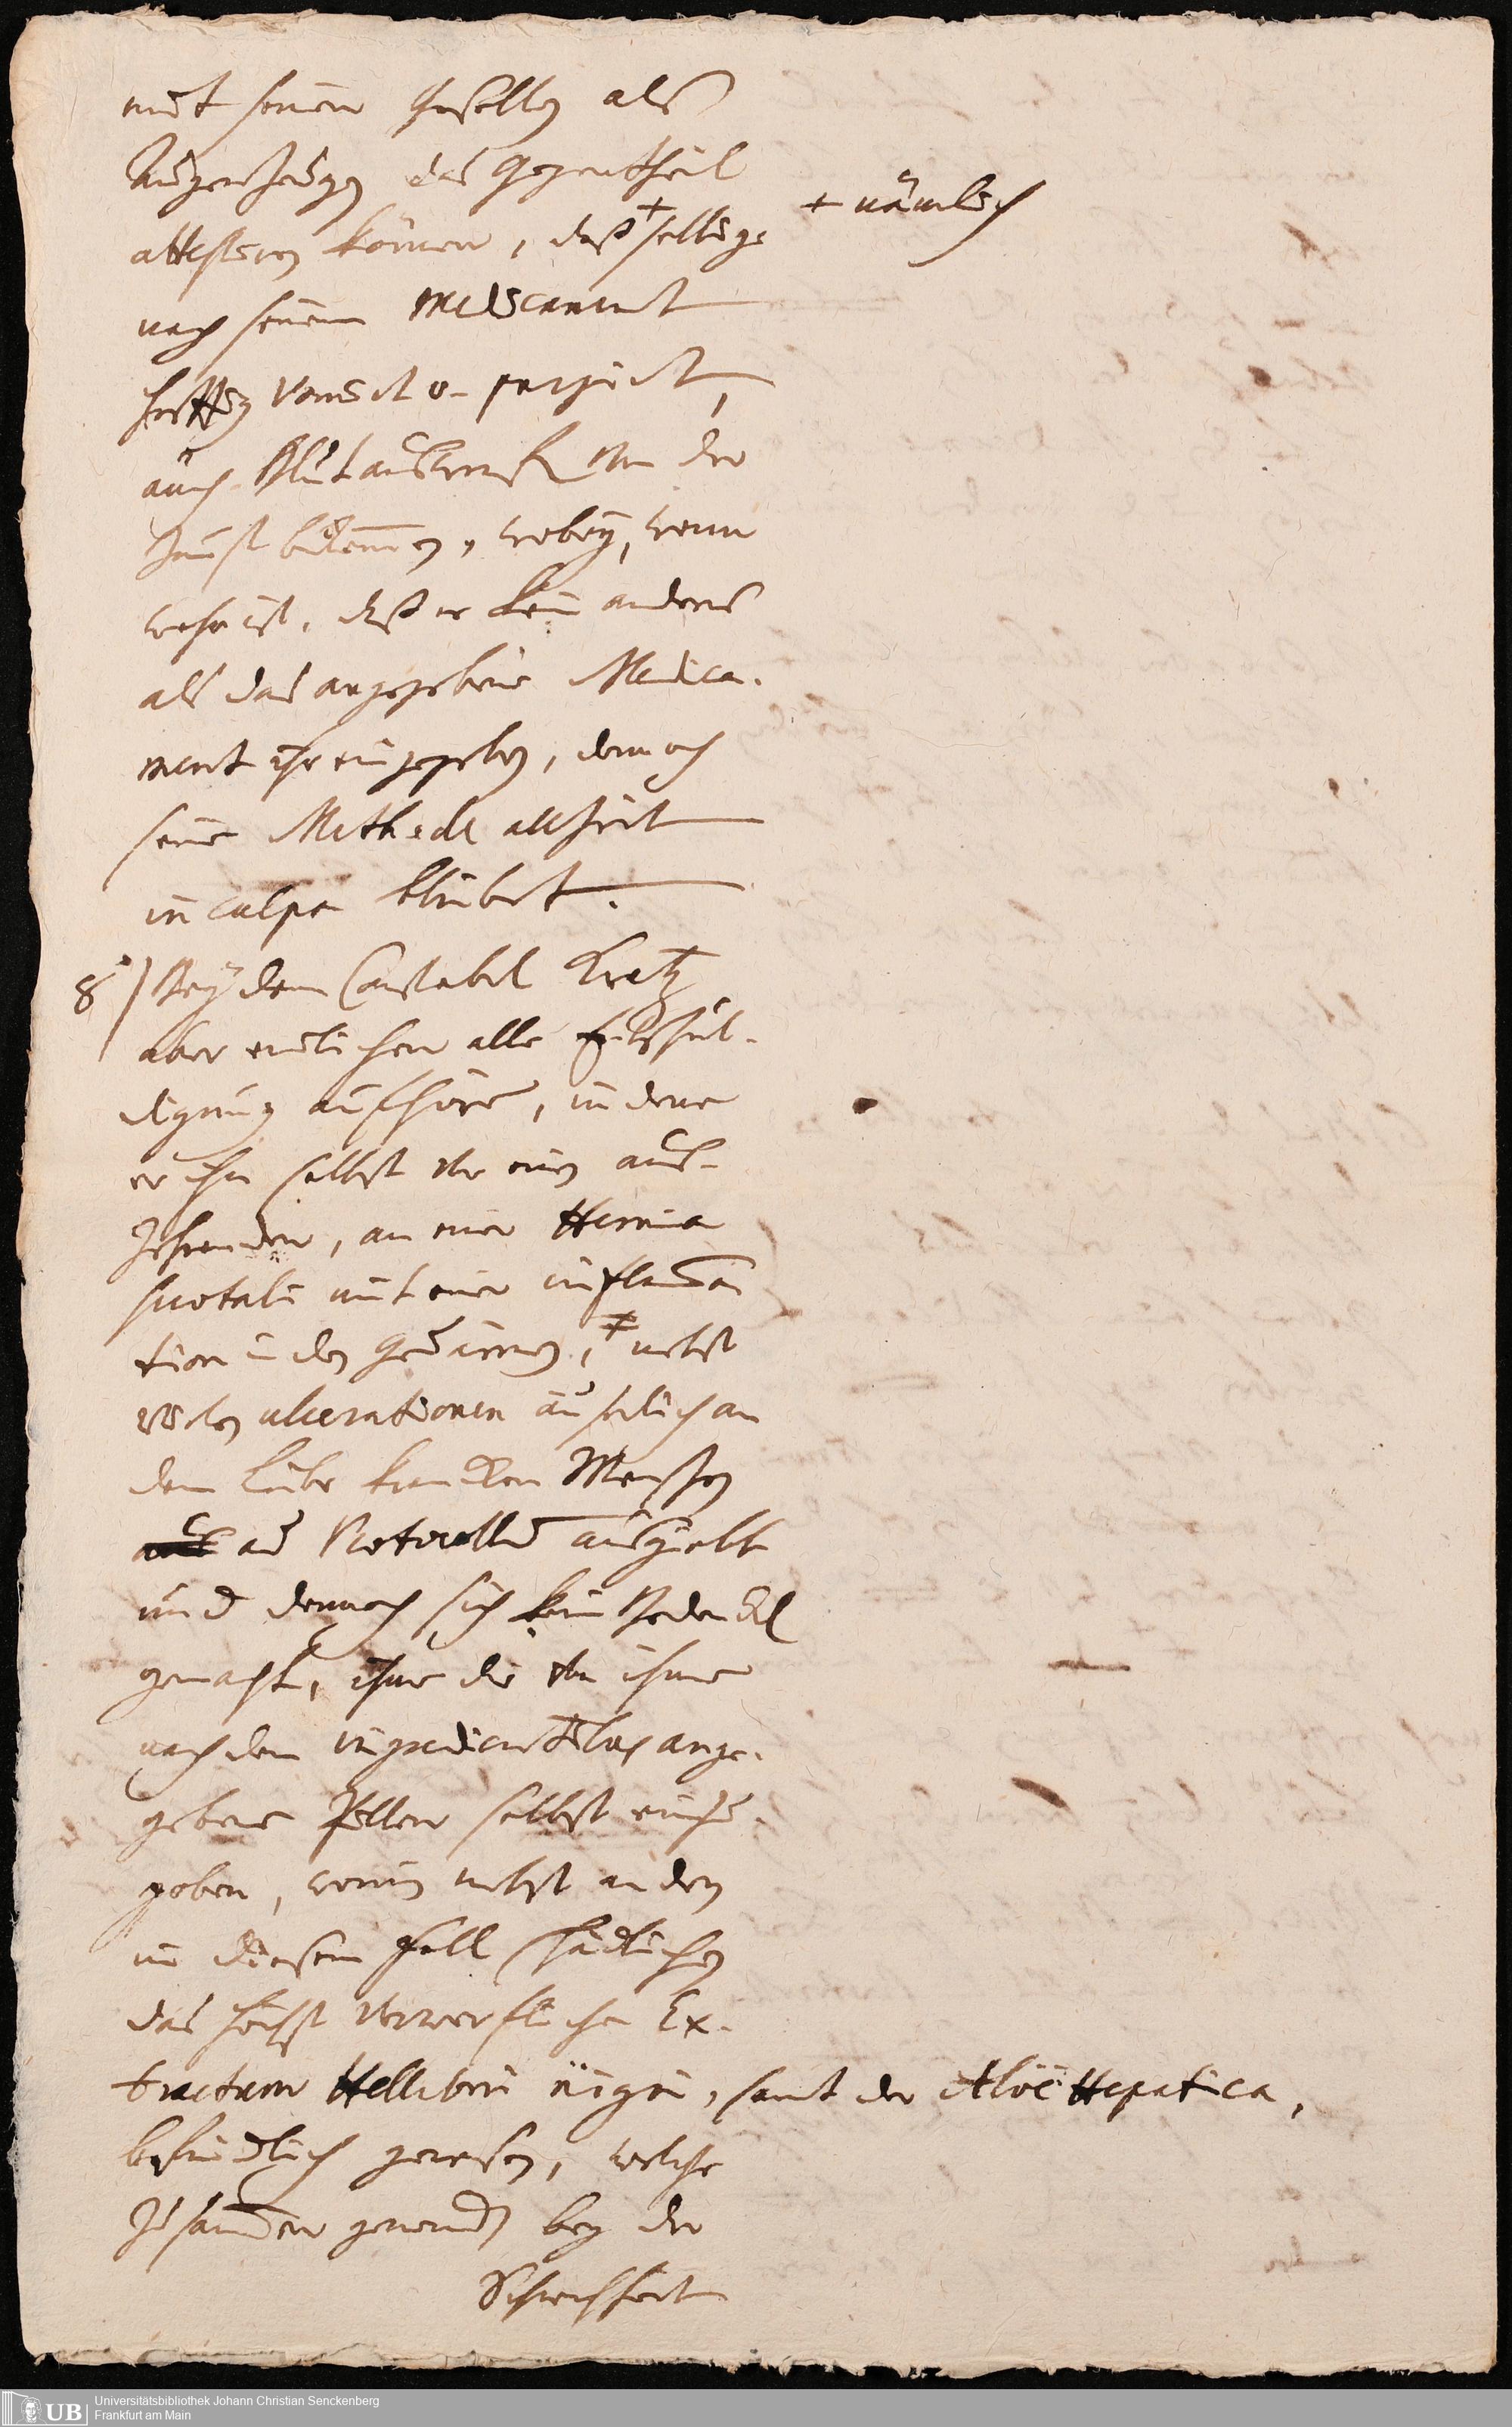 mit seinen Gesellen als
Augenzeugen das Gegentheil
attestiren können, daß + selbige
+ nämlich
nach seinem medicament
hefftig vomirt u. purgirt,
auch Blutauswurf von der
Brust bekommen, wobey, wenn
wahr ist, daß er kein anders
als das angegebene Medica-
ment ihr eingegeben, dennoch
seine Methode allzeit
in culpa bleibet.
8) Bey dem Constabel Kratz
aber endlichen alle Entschul-
digung aufhöre, in deme
er ihn selbst vor einen aus-
zehrenden, an einer Hernia
scrotali mit einer inflamma
tion in den Gedärmen, ‡ nebst
vielen ulcerationen äuserlich an
dem Leibe krancken Menschen
ad Protocollum ausgiebt
und dennoch sich kein Bedenckh
gemacht, ihme die von ihme
nach dem ingredientibus ange-
gebene Pillen selbst einzu-
geben, worin nebst andern
in diesem Fall schädlichen
das höchst verwerfliche Ex-
tractum Hellebori nigri, samt der Aloë Hepatica,
befindlich gewesen, welche
zusammen genomen bey der
Schwachheit
Universitätsbibliothek Johann Christian Senckenberg
Frankfurt am Main
UB